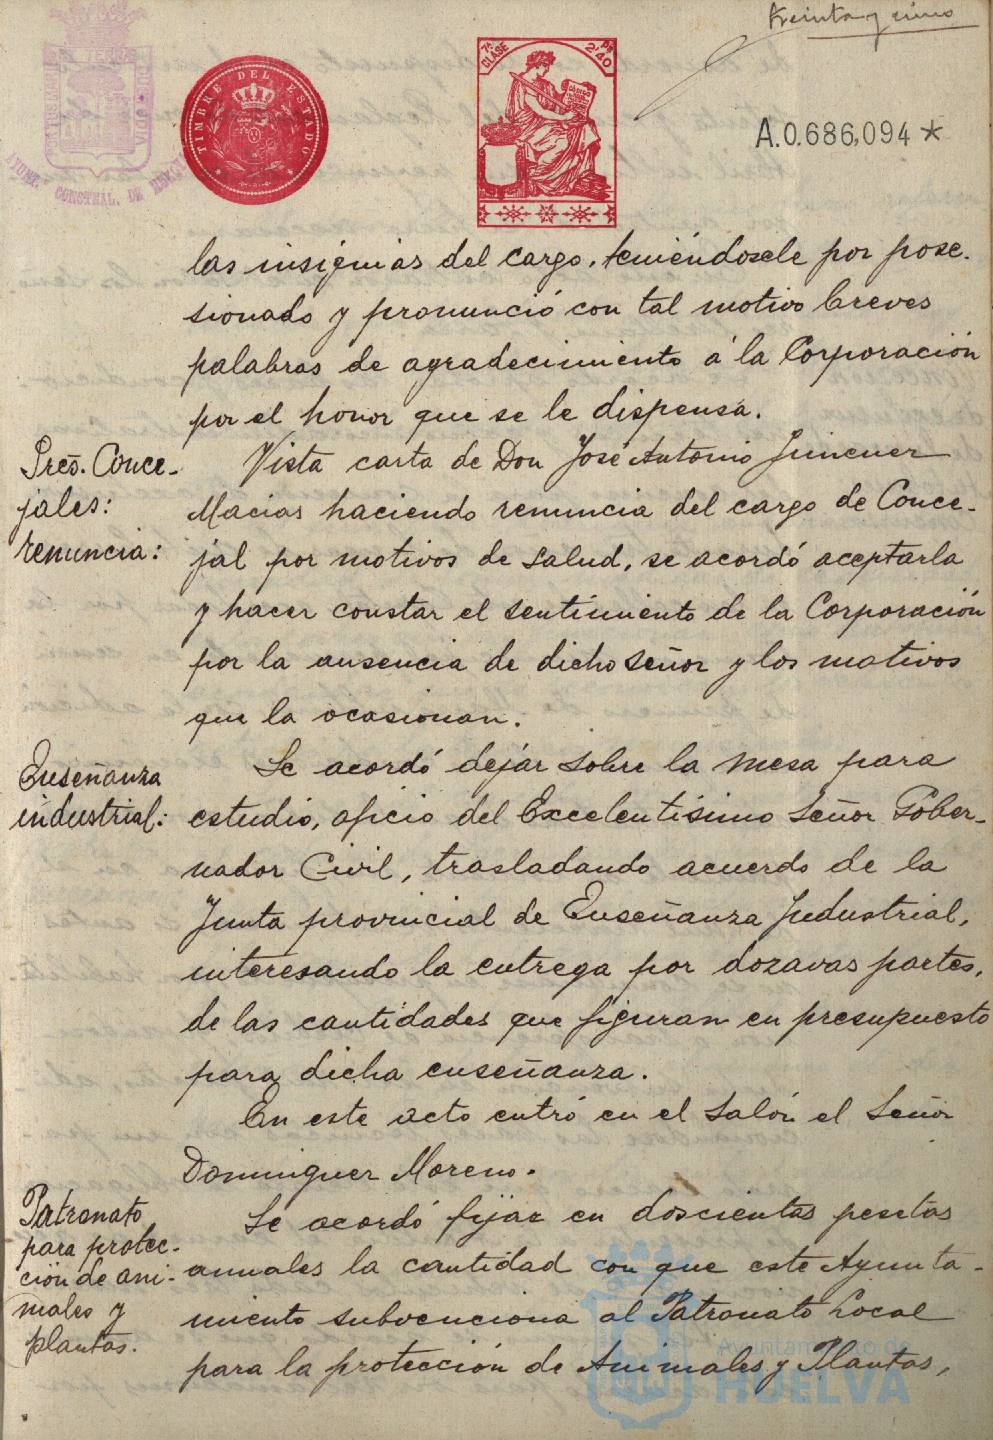 treinta y cinco
TIMBRE DEL ESTADO
7ª CLASE
2'40
A.0.686,094 *
las insignias del cargo, teniéndosele por pose-
sionado y pronunció con tal motivo breves
palabras de agradecimiento á la Corporación
por el honor que se le dispensa.
Pres. Conce-
jales:
renuncia:
Vista carta de Don José Antonio Jimenez
Macias haciendo renuncia del cargo de Conce-
jal por motivos de salud, se acordó aceptarla
y hacer constar el sentimiento de la Corporación
por la ausencia de dicho señor y los motivos
que la ocasionan.
Enseñanza
industrial:
Se acordó dejar sobre la mesa para
estudio, oficio del Excelentísimo Señor Gober-
nador Civil, trasladando acuerdo de la
Junta provincial de Enseñanza Industrial,
interesando la entrega por dozavas partes,
de las cantidades que figuran en presupuesto
para dicha enseñanza.
En este acto entró en el Salón el Señor
Dominguez Moreno.
Patronato
para protec-
ción de ani-
males y
plantas.
Se acordó fijar en doscientas pesetas
anuales la cantidad con que este Ayunta-
miento subvenciona al Patronato Local
para la protección de Animales y Plantas,
Ayuntamiento de
HUELVA